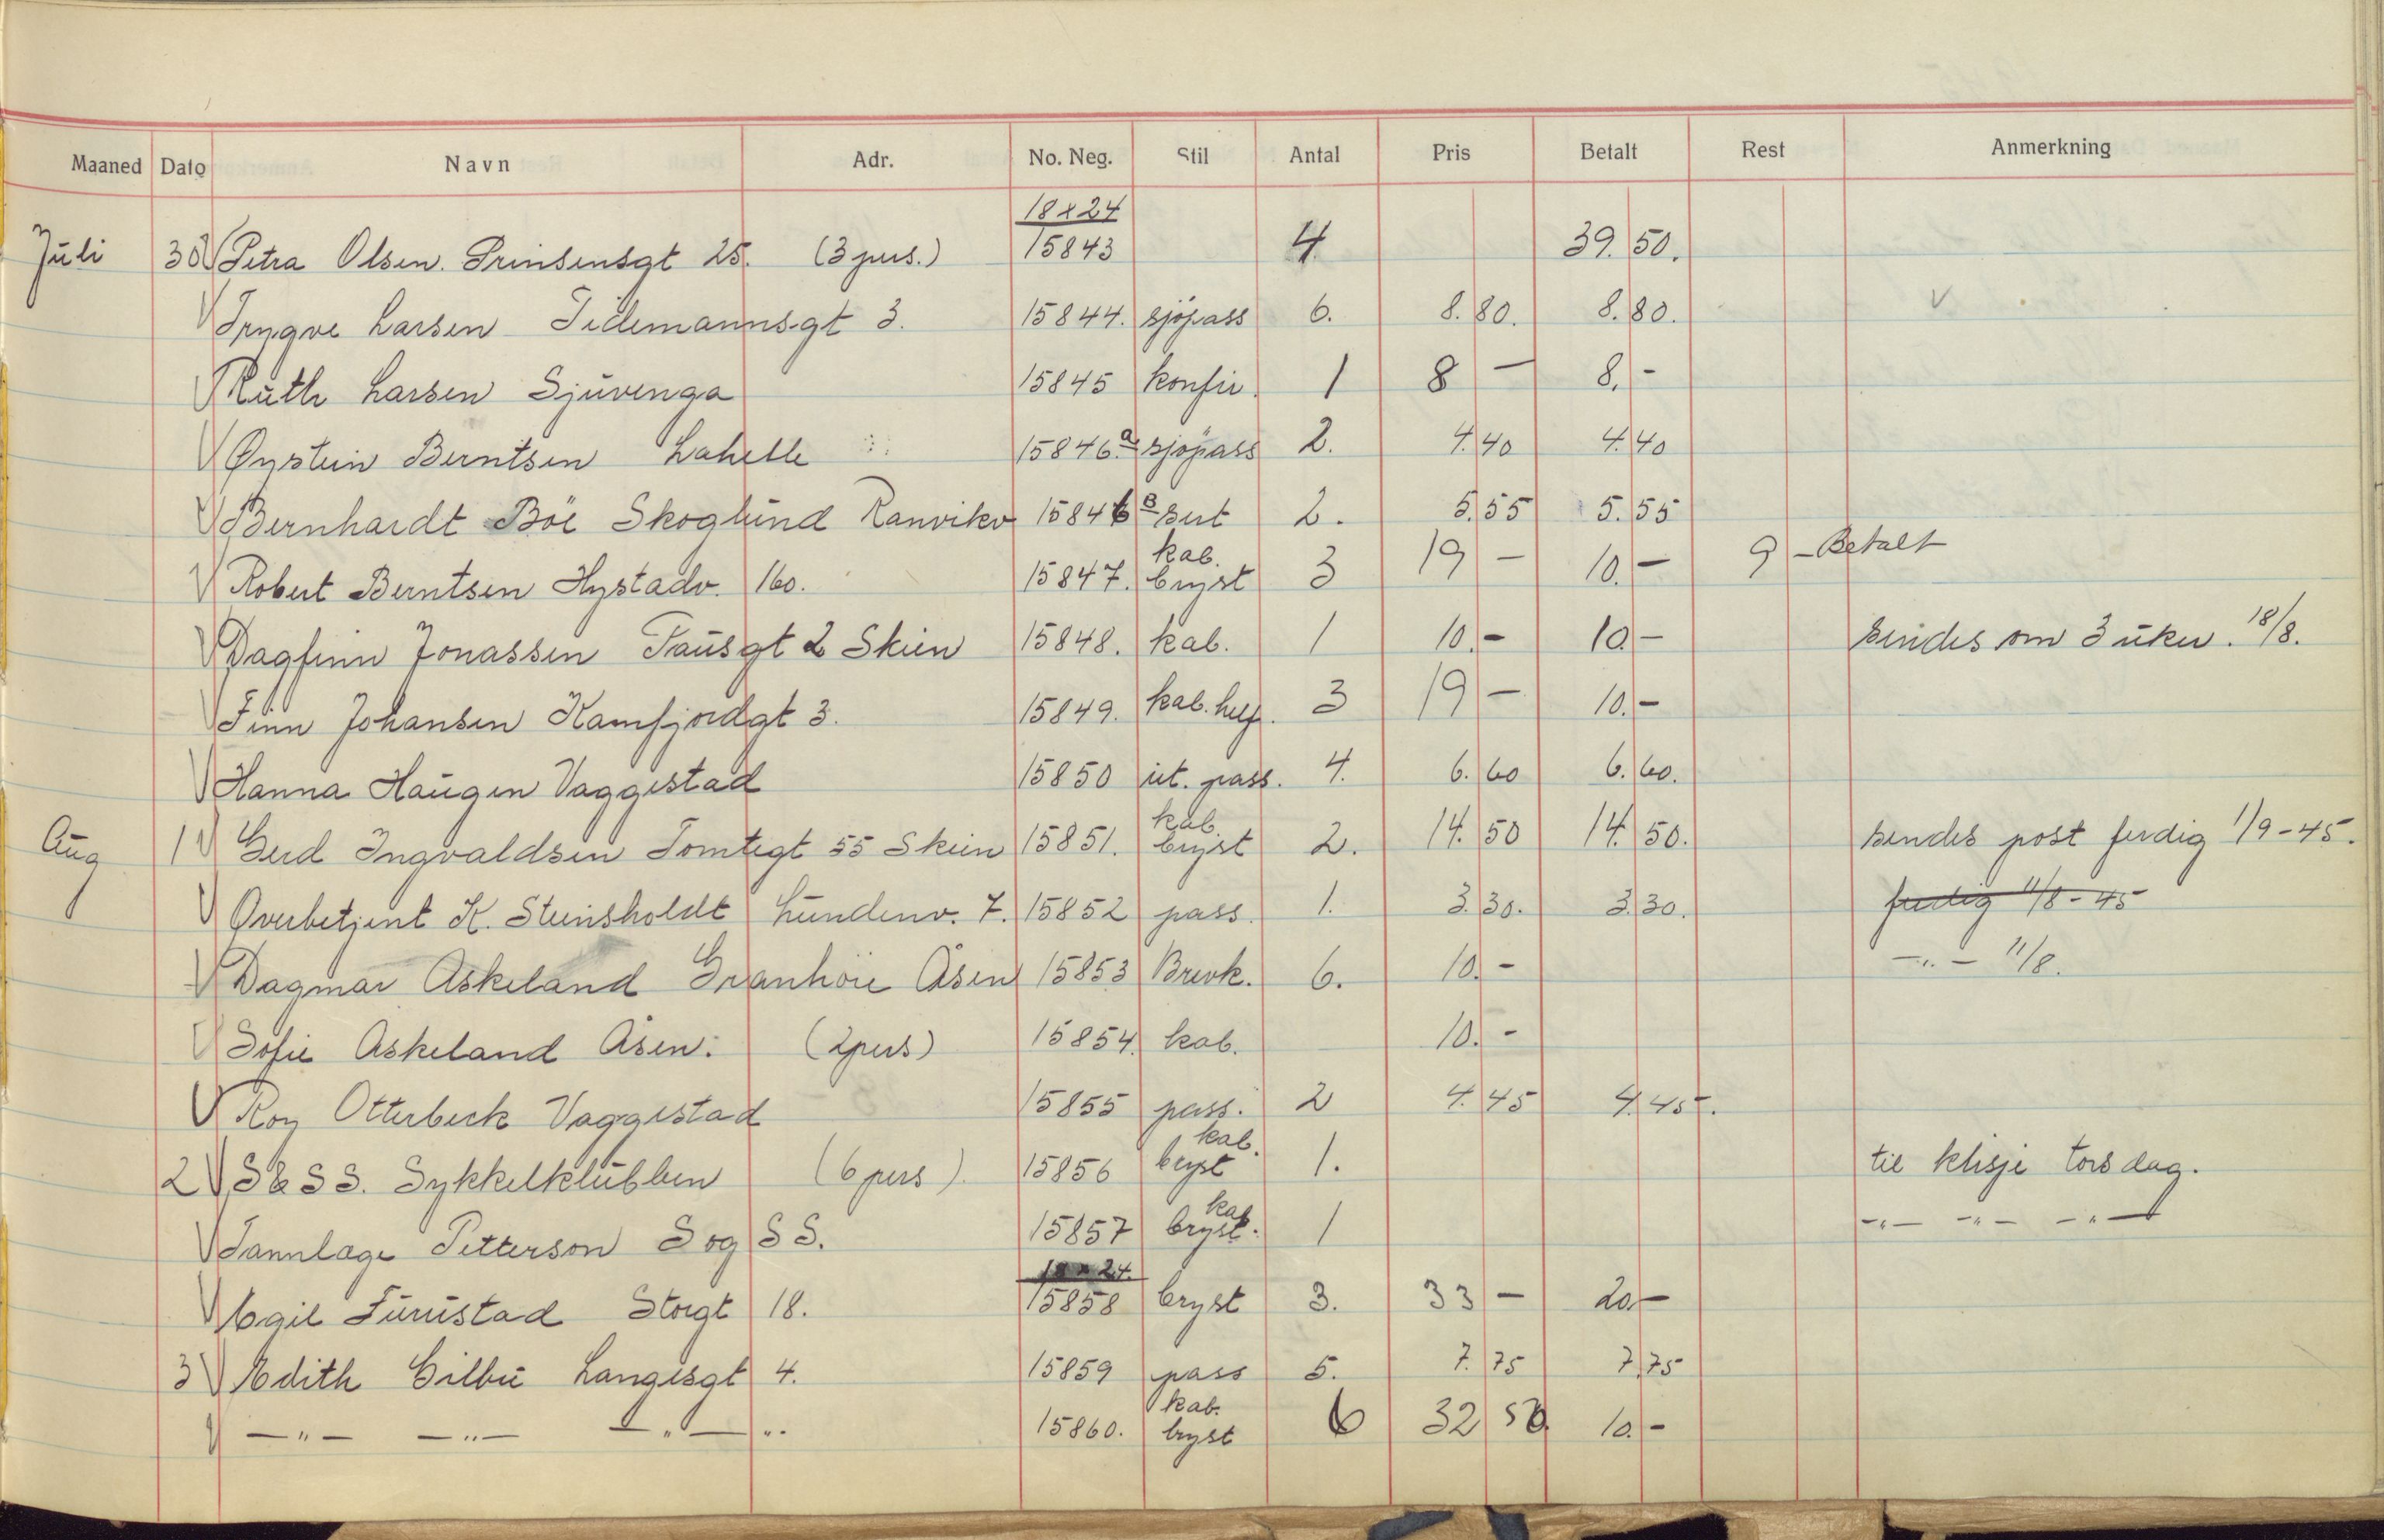 Maaned Dato Navn Adr. No. Neg. Stil Antal Pris Betalt Rest Anmerkning
18 x 24
Juli 30 Petra Olsen. Prinsensgt 25. (3 pers.) 15843 4 39. 50.
Trygve Larsen Tidemannsgt 3. 15844. sjøpass 6. 8. 80. 8. 80. V
Ruth Larsen Sjuvenga 15845 konfir. 1 8 — 8. -
Øystein Berntsen Lahelle 15846.a sjøpass 2. 4. 40 4. 40
Bernhardt Böe Skoglund Ranvikv 15846 B sert 2. 5. 55 5. 55
Robert Berntsen Hystadv. 160. 15847. kab. bryst 3 19 — 10. — 9 — Betalt
Dagfinn Jonassen Tausgt 2 Skien 15848. kab. 1 10. - 10. — sendes om 3 uker. 18/8.
Finn Johansen Kamfjordgt 3. 15849. kab. helf. 3 19 — 10. -
Hanna Haugen Vaggestad 15850 ut. pass. 4. 6. 60 6. 60.
Aug 1 Gerd Ingvaldsen Tomtegt 55 Skien 15851. kab. bryst 2. 14. 50 14. 50. sendes post ferdig 1/9-45.
Overbetjent K. Steinsholdt Lundenv. 7. 15852 pass. 1. 3. 30. 3. 30. ferdig 11/8-45
Dagmar Askeland Granhöie Åsen 15853 Brevk. 6. 10. - —"— 11/8.
Sofie Askeland Åsen. (2 pers) 15854. kab. 10. -
Roy Otterbeck Vaggestad 15855 pass. 2 4. 45 4. 45.
2 S & S S. Sykkelklubben (6 pers). 15856 kab. bryst 1. til klisje torsdag.
Tannlage Petterson S og S S. 15857 kab. bryst. 1 —"— —"— —"—
18 x 24.
Egil Furustad Storgt 18. 15858 bryst 3. 33 — 20. —
3 Edith Gilbu Langesgt 4. 15859 pass 5. 7. 75 7. 75
—"— —"— —"— " 15860. kab. bryst 6 32 50. 10. -